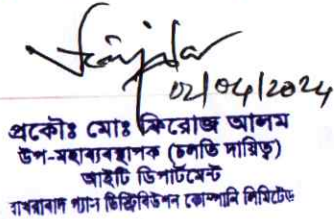 02/04/2024
প্রকৌঃ মোঃ ফিরোজ আলম
উপ-মহাব্যবস্থাপক (চলতি দায়িত্ব)
আইটি ডিপার্টমেন্ট
বাখরাবাদ গ্যাস ডিস্ট্রিবিউশন কোম্পানি লিমিটেড